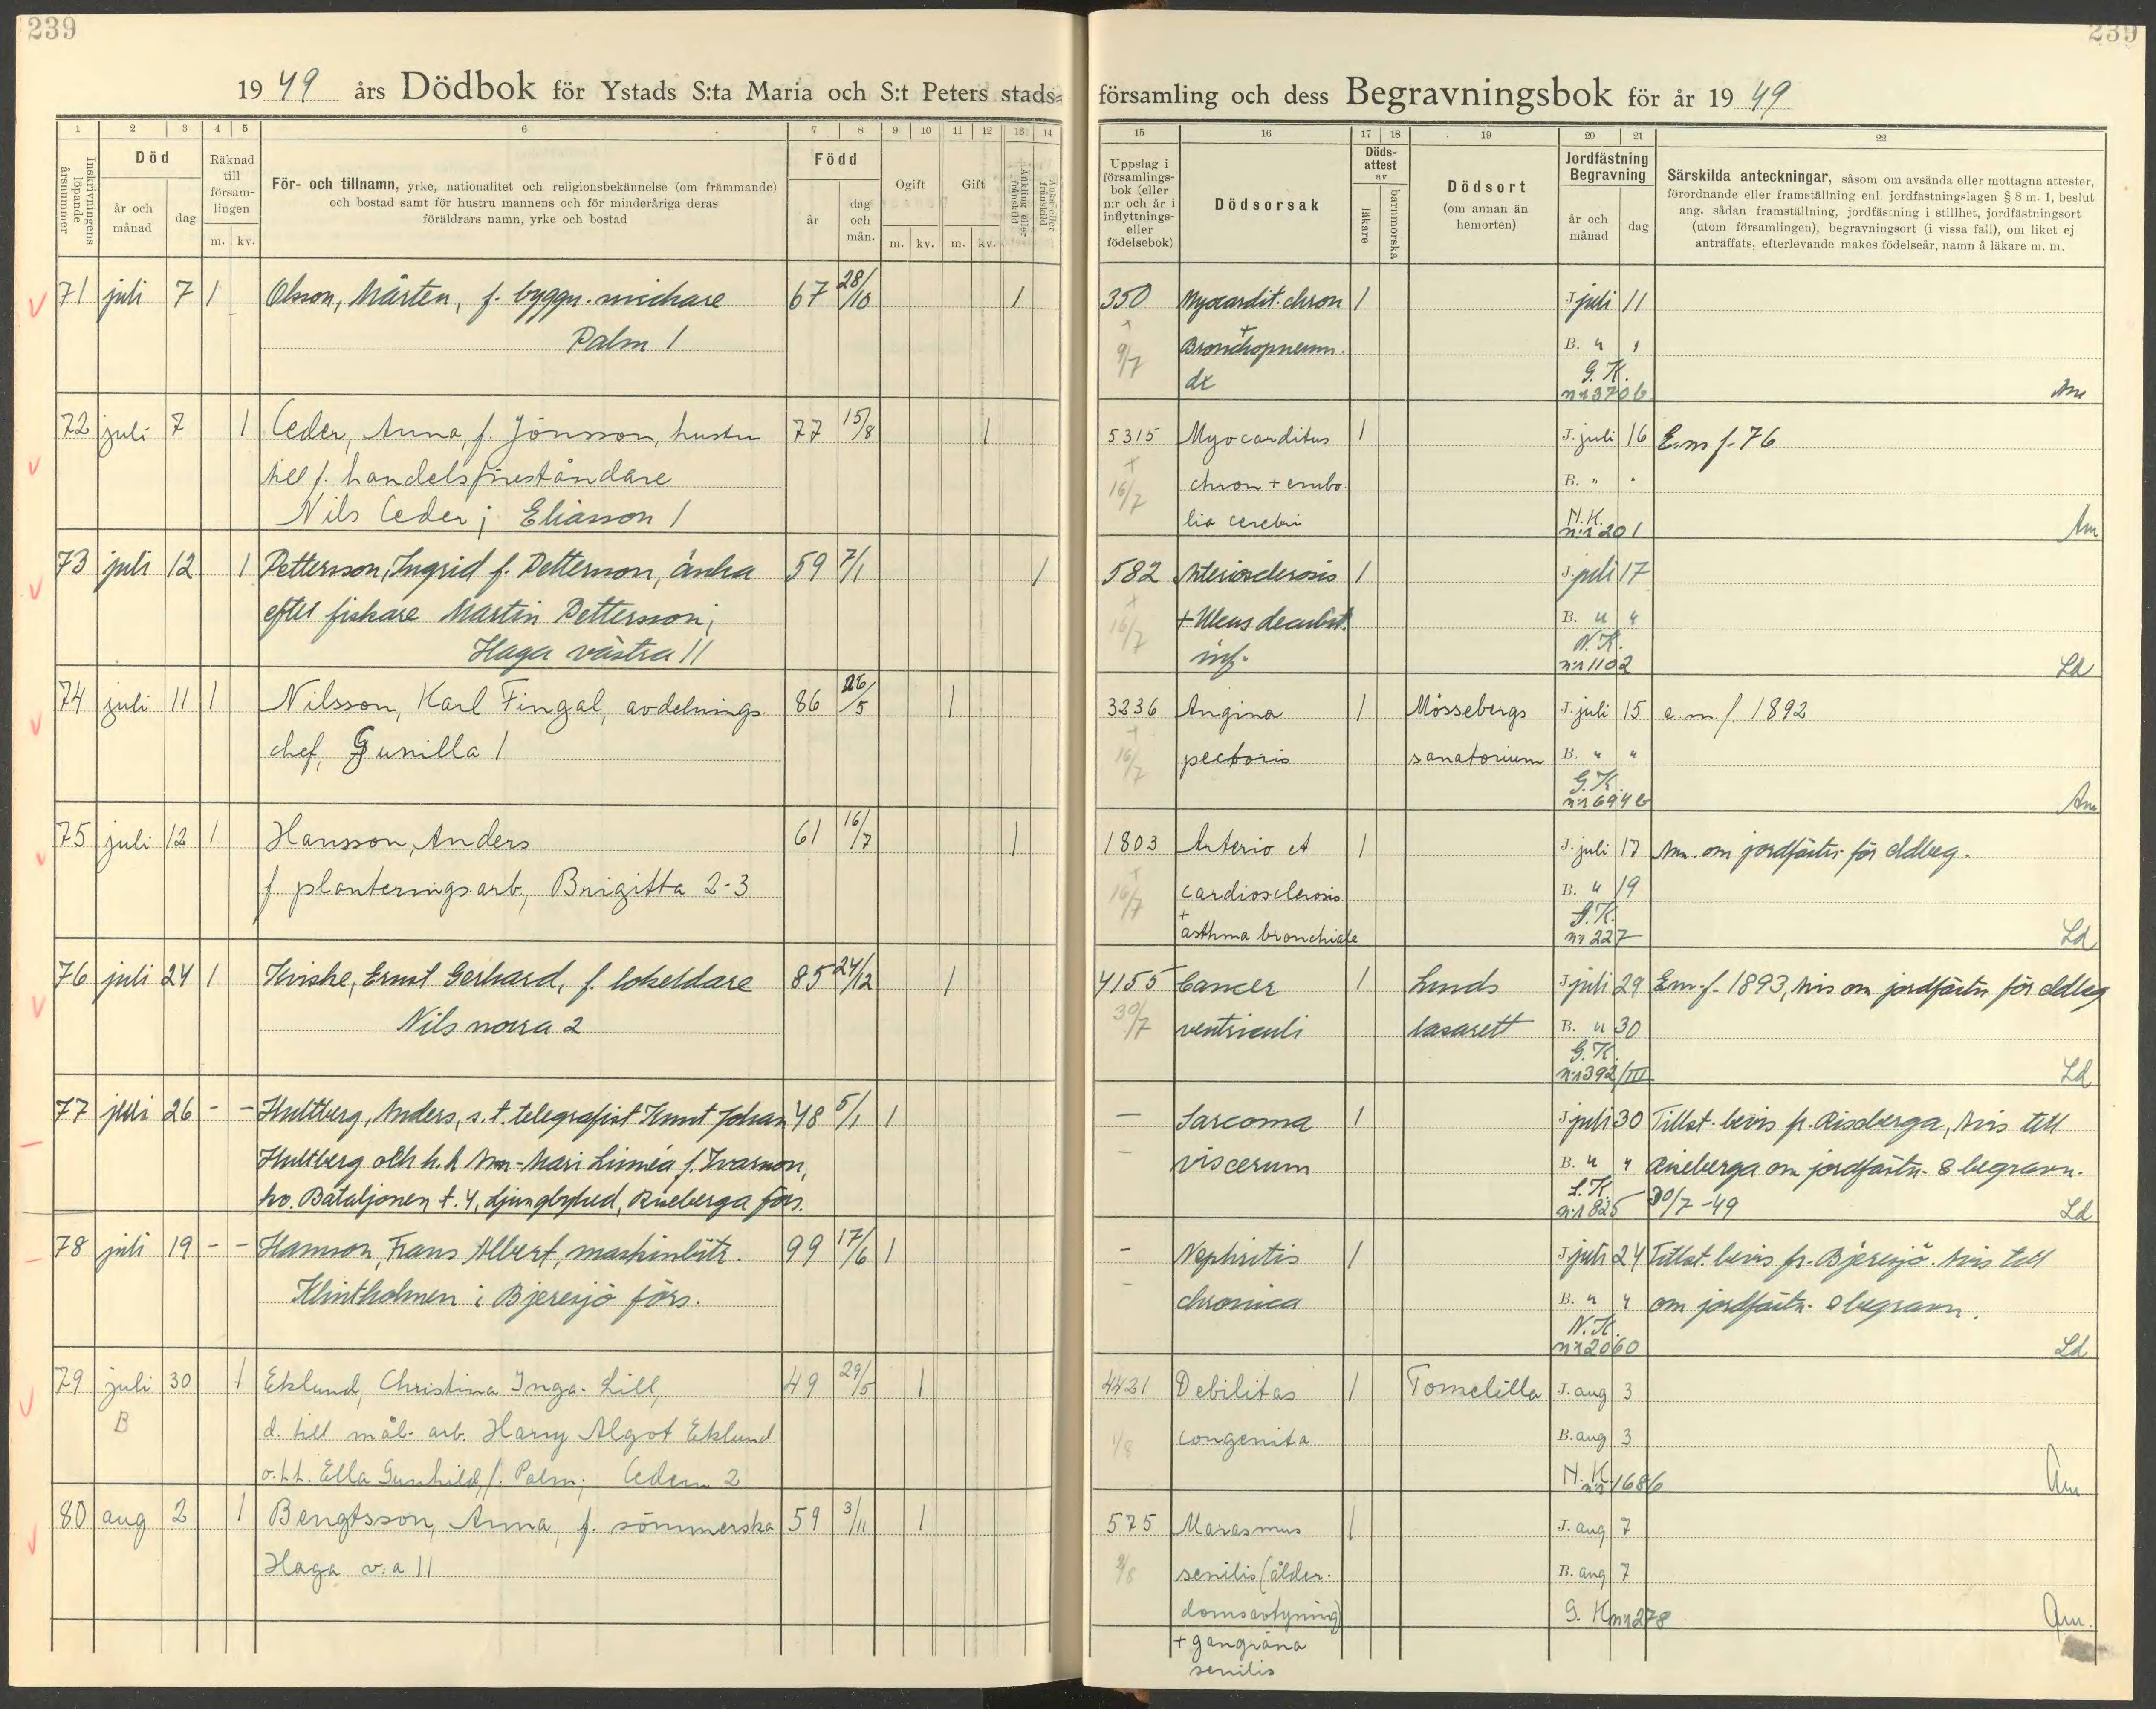 239
239
1949 års Dödbok för Ystads S:ta Maria och S:t Peters stads-
församling och dess Begravningsbok för år 1949
1 2 3 4 5 6 7 8 9 10 11 12 13 14
15 16 17 18 19 20 21 22
Inskrivningens löpande årsnummer
Död
år och månad
dag
Räknad till församlingen
m. kv.
För- och tillnamn, yrke, nationalitet och religionsbekännelse (om främmande)
och bostad samt för hustru mannens och för minderåriga deras
föräldrars namn, yrke och bostad
Född
år
dag och mån.
Ogift
m. kv.
Gift
m. kv.
Änkling eller frånskild
Änka eller frånskild
Uppslag i församlings-
bok (eller
n:r och år i
inflyttnings-
eller
födelsebok)
Dödsorsak
Döds-
attest
av
läkare
barnmorska
Dödsort
(om annan än
hemorten)
Jordfästning
Begravning
år och
månad
dag
Särskilda anteckningar, såsom om avsända eller mottagna attester,
förordnande eller framställning enl. jordfästningslagen § 8 m. 1, beslut
ang. sådan framställning, jordfästning i stillhet, jordfästningsort
(utom församlingen), begravningsort (i vissa fall), om liket ej
anträffats, efterlevande makes födelseår, namn å läkare m. m.
71 juli 7 1 Olsson, Mårten, f. byggn. snickare 67 28/10 1 350 Myocardit. chron 1 J juli 11
Palm 1 + 9/7 + Bronchopneum. B. " "
dx G. K.
nr 370 b Am
72 juli 7 1 Ceder, Anna, f. Jönsson, hustru 77 15/8 1 5315 Myocarditus 1 J. juli 16 E.m f. 76
till f. handelsföreståndare + 16/7 chron + embo B. " "
Nils Ceder; Eliasson 1 lia cerebri N. K.
nr 201 Am
73 juli 12 1 Pettersson, Ingrid f. Pettersson, änka 59 7/1 1 582 Arteriosclerosis 1 J. juli 17
efter fiskare Martin Pettersson; + 16/7 + Ulcus decubit. B. " "
Haga västra 11 inf. N. K.
nr 1102 Ld
74 juli 11 1 Nilsson, Karl Fingal, avdelnings 86 26/5 1 3236 Angina 1 Mössebergs J. juli 15 e.m.f. 1892
chef, Gunilla 1 + 16/7 pectoris sanatorium B. " "
G. K.
nr 694 b Am
75 juli 12 1 Hansson, Anders 61 16/7 1 1803 Arterio et 1 J. juli 17 Ann. om jordfästn. för eldbeg.
f. planteringsarb., Brigitta 2-3 + 16/7 cardiosclerosis B. " 19
+ asthma bronchiale G. K.
nr 227 Ld
76 juli 24 1 Kviske, Ernst Gerhard, f. lokeldare 85 24/12 1 4155 Cancer 1 Lunds J juli 29 Em. f. 1893, Avis om jordfästn för eldbeg
Nils norra 2 30/7 ventriculi lasarett B. " 30
G. K.
nr 392/III Ld
77 juli 26 - - Hultberg, Anders, s. t. telegrafist Knut Johan 48 5/1 1 — Sarcoma 1 J juli 30 Tillst. bevis fr. Riseberga, Avis till
Hultberg och h. h Ann-Mari Linnéa f. Ivarsson, — viscerum B. " " Riseberga om jordfästn. & begravn.
hv. Bataljonen t. 4, Ljungbyhed, Riseberga förs. L. K. 30/7 -49
nr 825 Ld
78 juli 19 - - Hansson, Frans Albert, maskinbitr. 99 17/6 1 — Nephritis 1 J juli 24 Tillst. bevis fr. Bjeresjö. Avis till
Klintholmen i Bjeresjö förs. — chronica B. " " om jordfästn. & begravn.
N. K.
nr 2060 Ld
79 juli 30 1 Eklund, Christina Inga-Lill, 49 29/5 1 4421 Debilitas 1 Tomelilla J. aug 3
B d. till mål. arb. Harry Algot Eklund 1/8 congenita B. aug 3
o. h.h. Ella Gunhild, f. Palm; Cedern 2 N. K. nr 1686 Am
80 aug 2 1 Bengtsson, Anna, f. sömmerska 59 3/11 1 575 Marasmus 1 J. aug 7
Haga v:a 11 2/8 senilis (ålder- B. aug 7
domsavtyning) G. K nr 278 Am.
+ gangräna
senilis